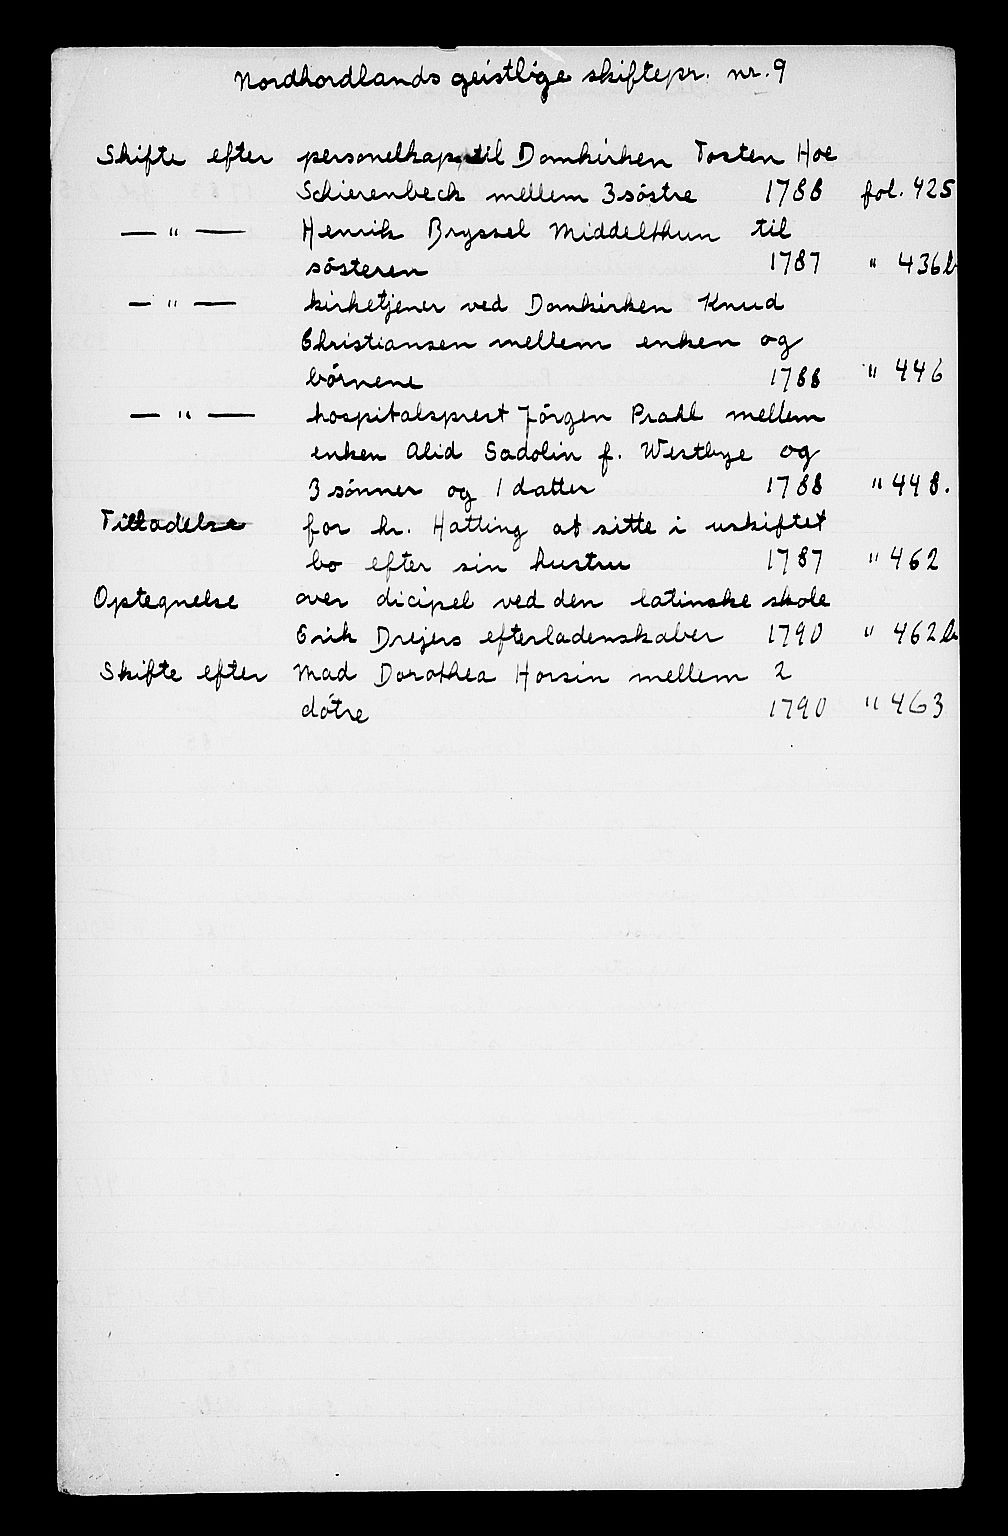 Nordhordlands geistlige skiftepr. nr. 9
Skifte efter personelkap. til Domkirken Tosten Hoe
Schierenbeck mellem 3 söstre 1788 fol. 425
— " — Henrik Bryssel Middelthun til
sösteren 1787 " 436b
— " — kirketjener ved Domkirken Knud
Christiansen mellem enken og
börnene 1788 " 446
— " — hospitalsprest Jörgen Prahl mellem
enken Alid Sadolin f. Westbye og
3 sönner og 1 datter 1788 " 448.
Tilladelse for hr. Hatting at sitte i uskiftet
bo efter sin hustru 1787 " 462
Optegnelse over dicipel ved den latinske skole
Erik Drejers efterladenskaber 1790 " 462b
Skifte efter Mad Dorothea Horsin mellem 2
dötre 1790 " 463